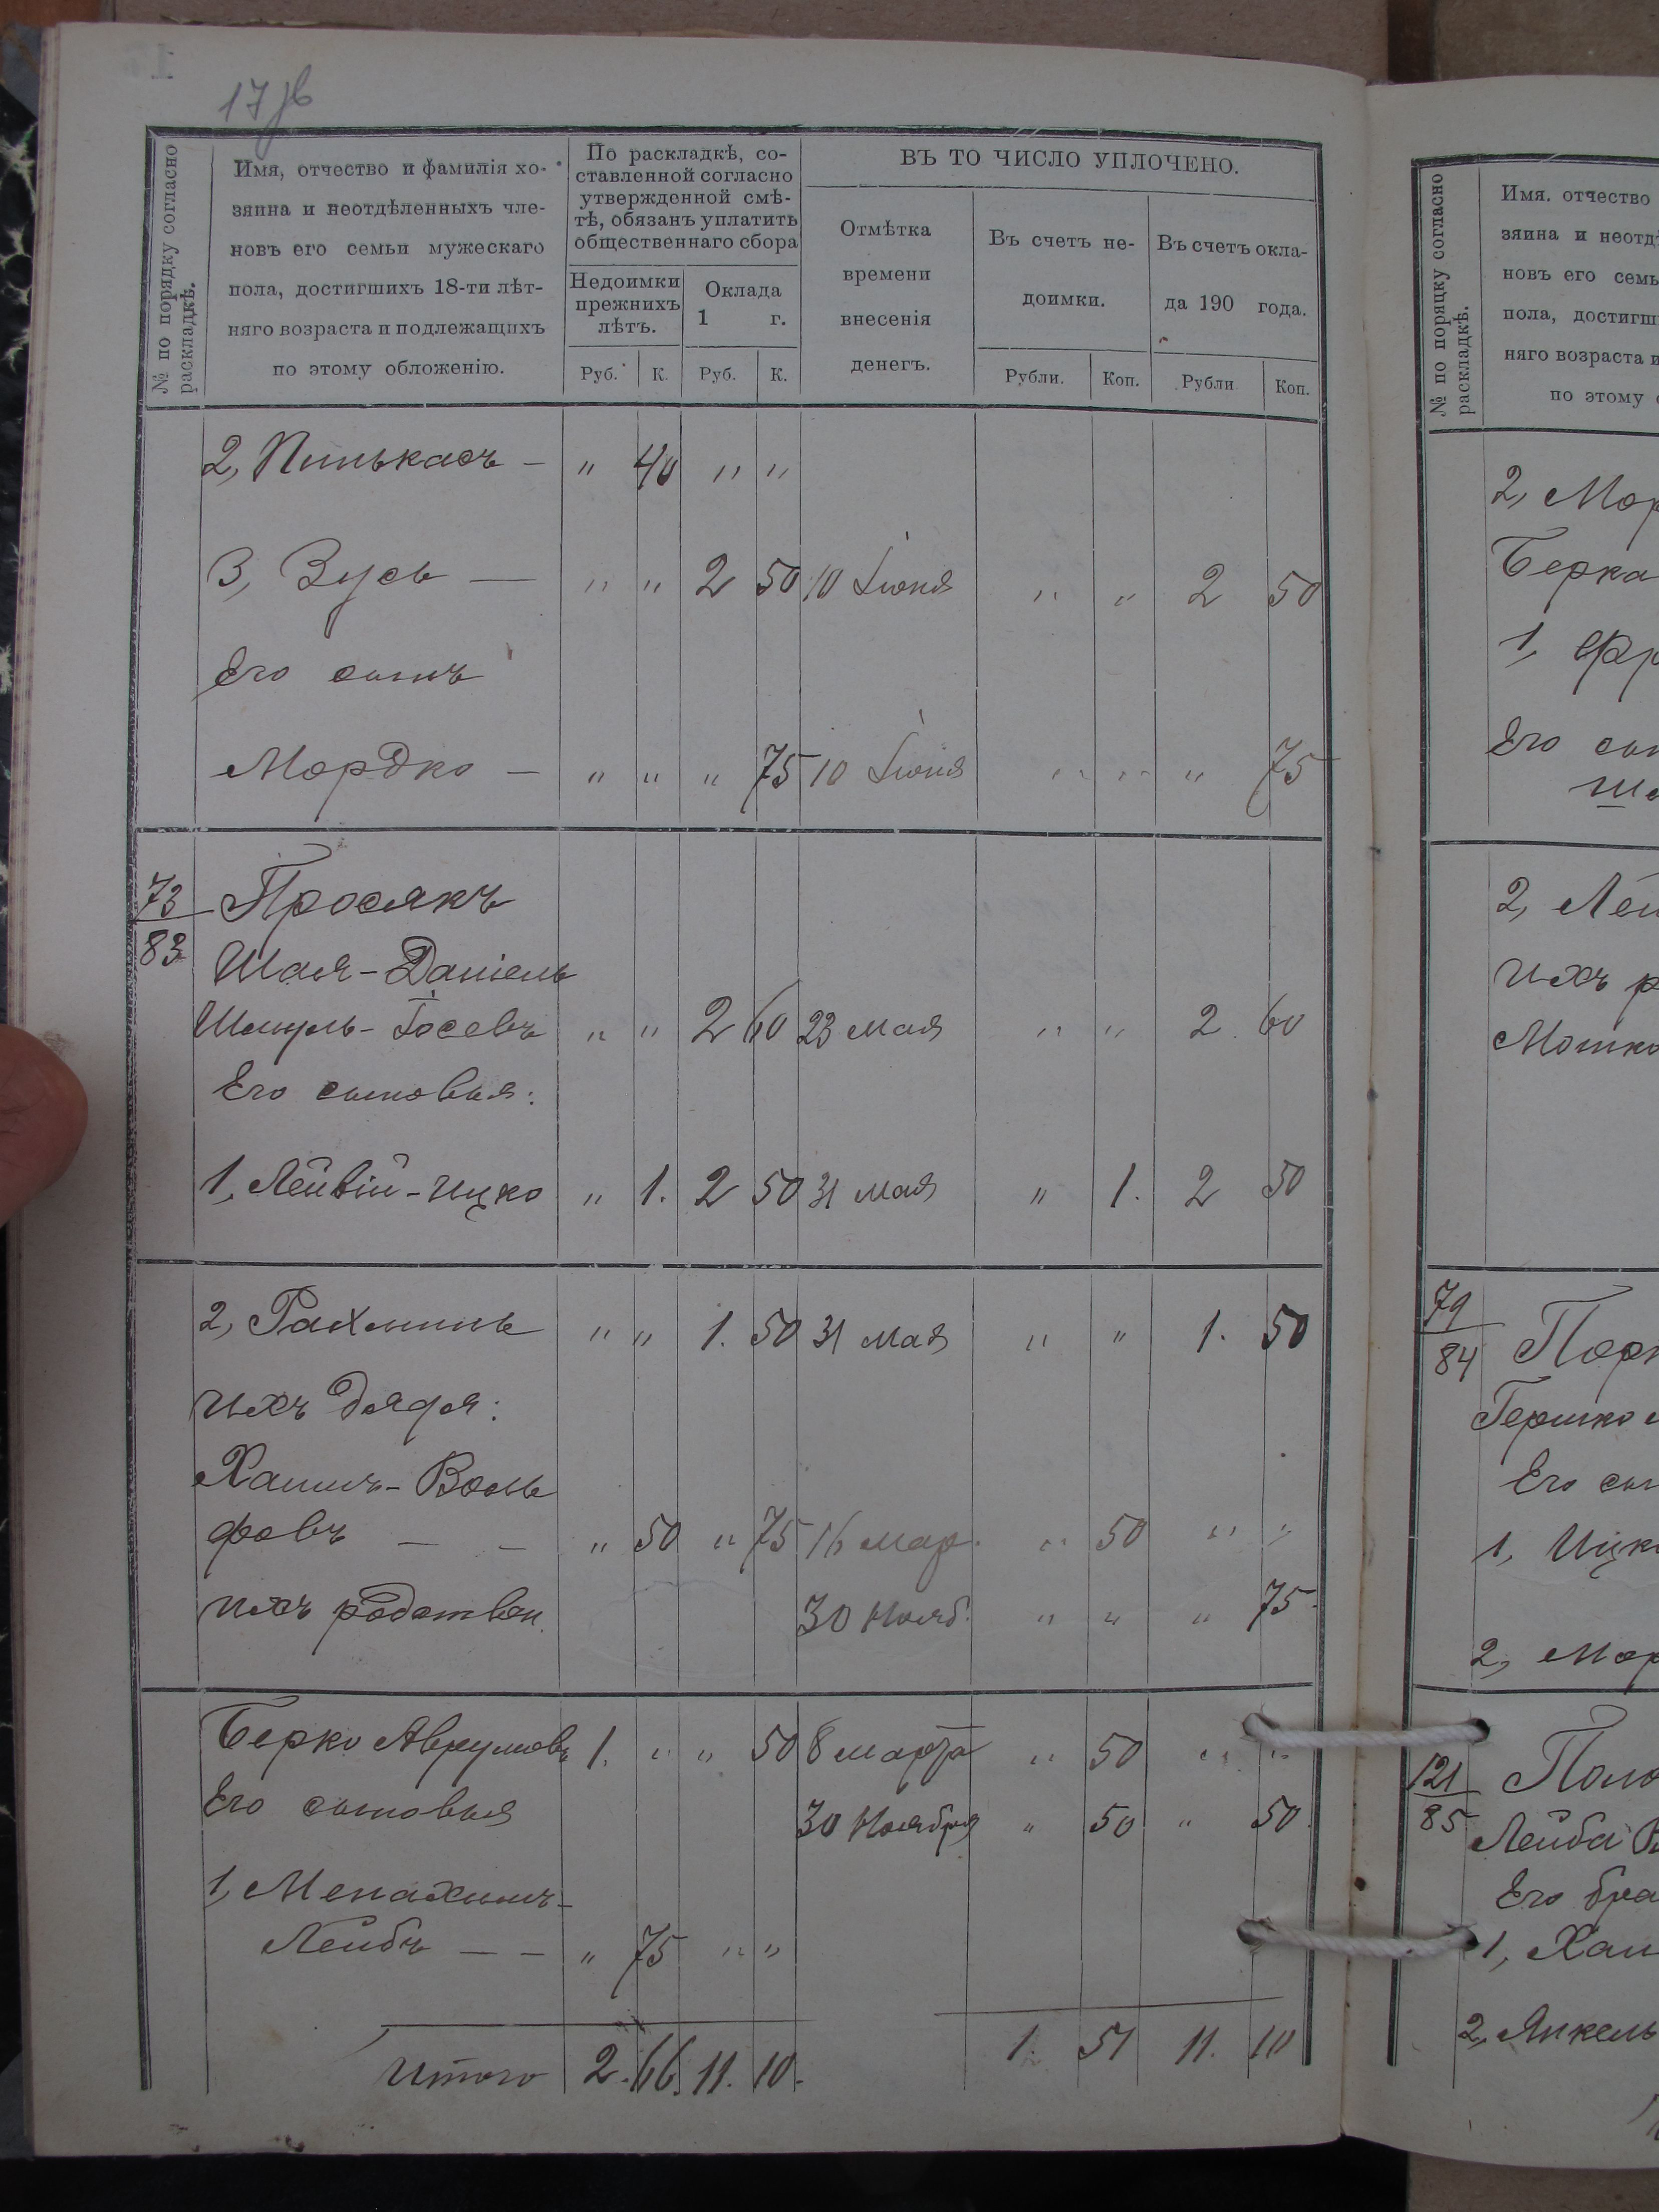 № по порядку согласно
раскладкѣ.
Имя, отчество и фамилія хо-
зяина и неотдѣленныхъ чле-
новъ его семьи мужескаго
пола, достигшихъ 18-ти лѣт-
няго возраста и подлежащихъ
по этому обложенію.
По раскладкѣ, со-
ставленной согласно
утвержденной смѣ-
тѣ, обязанъ уплатить
общественнаго сбора
Недоимки
прежнихъ
лѣтъ.
Оклада
1 г.
Руб. К. Руб. К.
ВЪ ТО ЧИСЛО УПЛОЧЕНО.
Отмѣтка
времени
внесенія
денегъ.
Въ счетъ не-
доимки.
Въ счетъ окла-
да 190 года.
Рубли. Коп. Рубли Коп.
2, Пинькасъ — " 40 " "
3, Зусь — " " 2 50 10 Іюня " " 2 50
Его сынъ
Мордко — " " " 75 10 Іюня " " " 75
73
83
Просякъ
Шая-Даніель
Шмуль-Іосевъ " " 2 60 23 мая " " 2 60
Его сыновья:
1, Лейвій-Ицко " 1. 2 50 31 мая " 1. 2 50
2, Рахминь " " 1. 50 31 мая " " 1. 50
ихъ дядя:
Хаимъ-Воль
фовъ — — " 50 " 75 16 мар. " 50 " "
ихъ родствен. 30 Нояб. " " " 75
Берко Аврумовъ 1. " " 50 8 марта " 50 " "
Его сыновья 30 Ноября " 50 " 50
1, Менахимъ-
Лейбъ — — " 75 " "
Итого 2. 66. 11. 10. 1. 51 11. 10
№ по порядку согласно
раскладкѣ.
Имя. отчество
зяина и неотдѣ
новъ его семь
пола, достигш
няго возраста и
по этому
2, Мор
Берка
1, Фр
Его сын
2, Лей
ихъ р
Мошко
79
84
Гершко
Его сы
1, Ицк
2, Мор
121
85
Лейба
Его бра
1, Хаи
2, Янкель